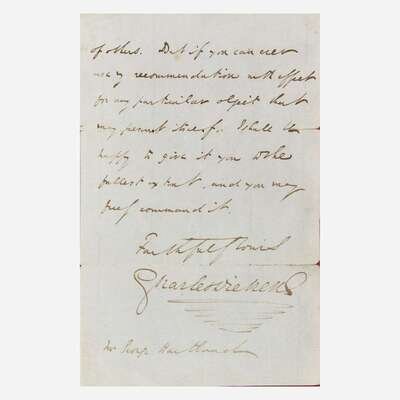 of others. But if you can ever
use my recommendation with effect
for any particular object that
may present itself. I shall be
happy to give it you to the
fullest extent, and you may
freely command it.
Faithfully Yours
Charles Dickens
Mr George